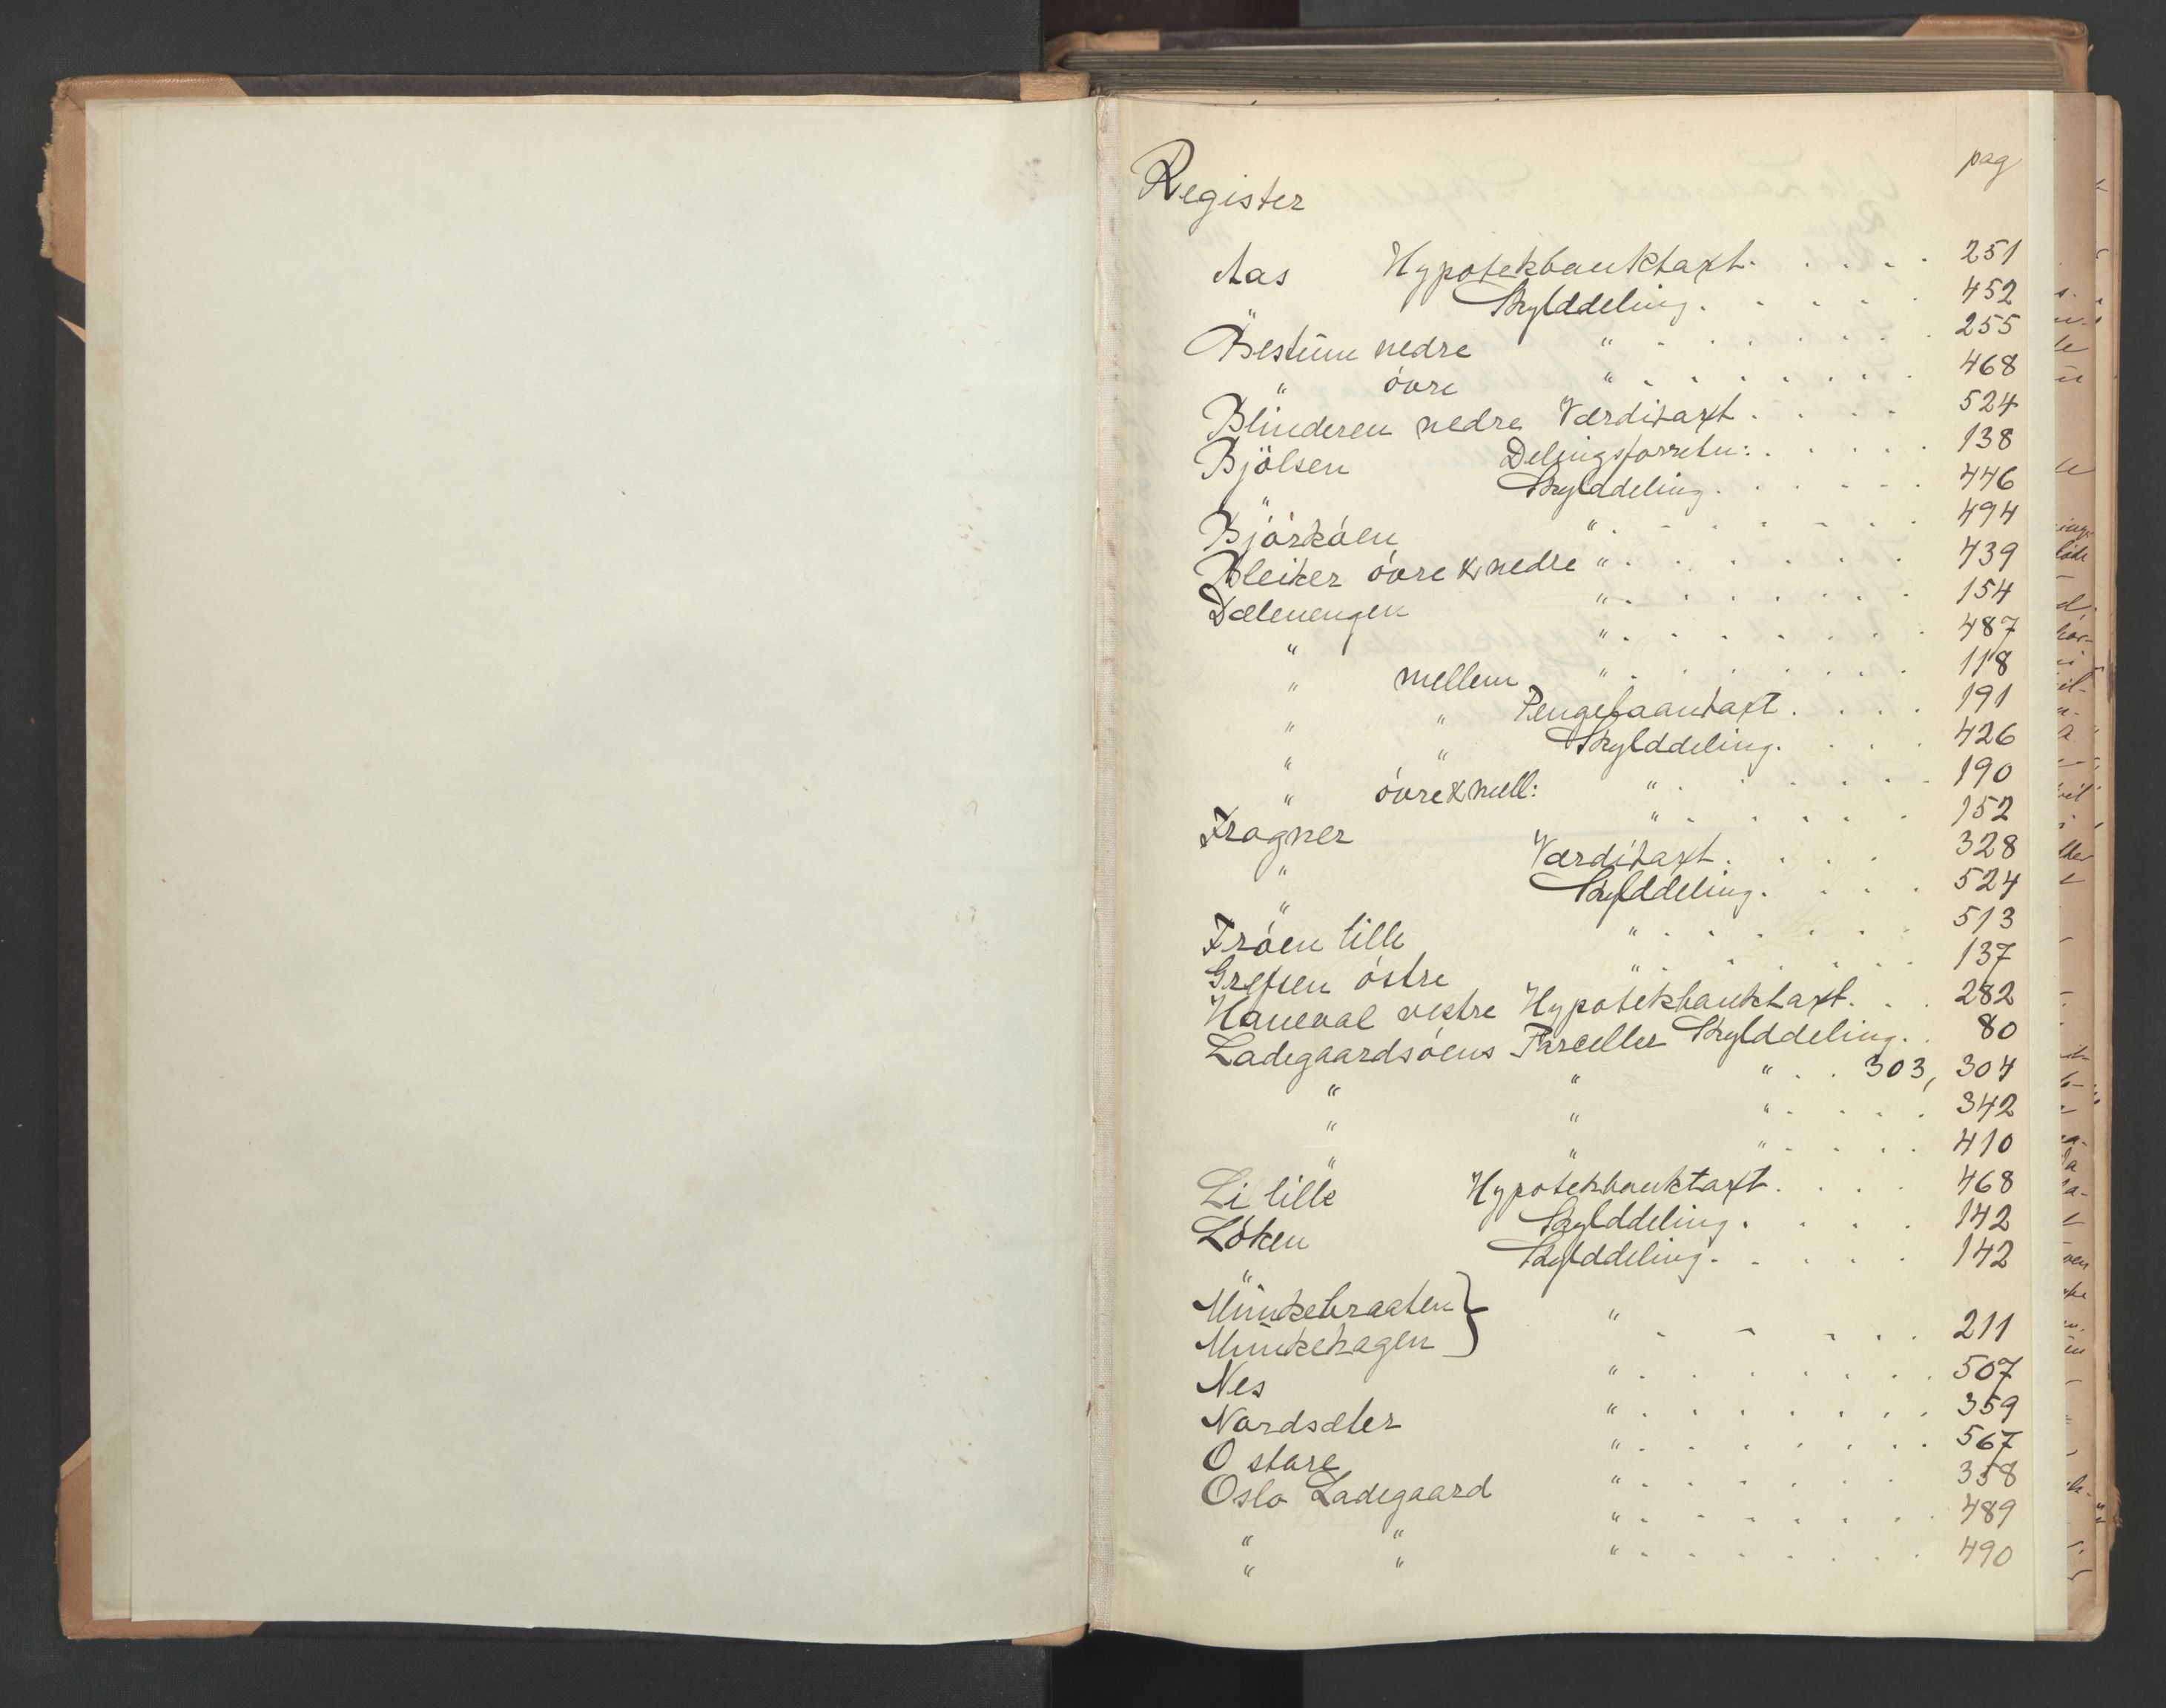 pag
Register
Aas Hypotekbanktaxt. . . . . 251
" Skylddeling. . . . . 452
Bestum nedre " . . . . . . . 255
" övre " . . . . . . . 468
Blinderen nedre Værditaxt . . . . 524
Bjölsen Delingsforretn: . . . . . 138
" Skylddeling. . . . . . 446
Björköen " . . . . . . . 494
Bleiker övre & nedre " . . . . . . . 439
Dælenengen " . . . . . . . 154
" " . . . . . . . 487
" mellem " . . . . . . . 118
" " Pengelaantaxt . . . . 191
" " Skylddeling. . . . . 426
" övre & mell: " . . . . . . 190
Frogner " . . . . . . 152
" Værditaxt. . . . . 328
" Skylddeling. . . . . 524
Fröen lille " . . . . . . . 513
Grefsen östre " . . . . . . . 137
Haneval vestre Hypotekbanktaxt. . . 282
Ladegaardsöens Parceller Skylddeling. . 80
" " " . . 303, 304
" " " . . . . . 342
" " " . . . . . 410
Li lille Hypotekbanktaxt. . . . 468
Löken Skylddeling. . . . . 142
" Skylddeling. . . . . . 142
Munkebraaten }
Munkehagen } " . . . . . . 211
Nes " . . . . . . . 507
Nordsæter " . . . . . . . 359
O store " . . . . . . . 567
Oslo Ladegaard " . . . . . . . 358
" " " . . . . . . . 489
" " " . . . . . . . 490